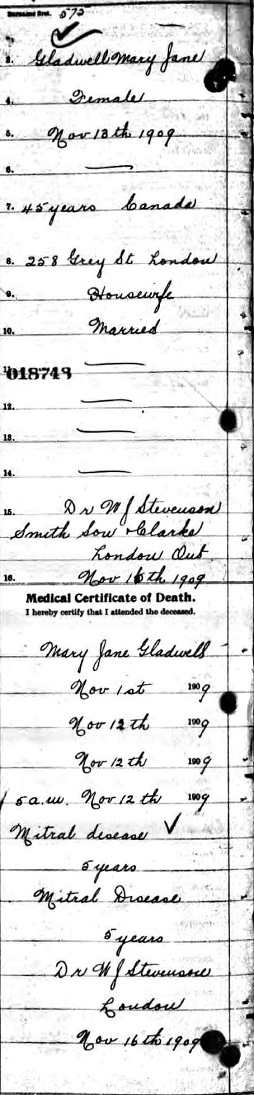 Surname first. 575
3. Gladwell Mary Jane
4. Female
5. Nov 13th 1909
6.
7. 45 years Canada
8. 258 Grey St London
9. Housewife
10. Married
018743
12.
13.
14.
15. Dr W J Stevenson
Smith Son & Clarke
London Ont.
16. Nov 16th 1909
Medical Certificate of Death.
I hereby certify that I attended the deceased.
Mary Jane Gladwell
Nov 1st 1909
Nov 12th 1909
Nov 12th 1909
5 a.m. Nov 12th 1909
Mitral disease
5 years
Mitral Disease
5 years
Dr W J Stevenson
London
Nov 16th 1909